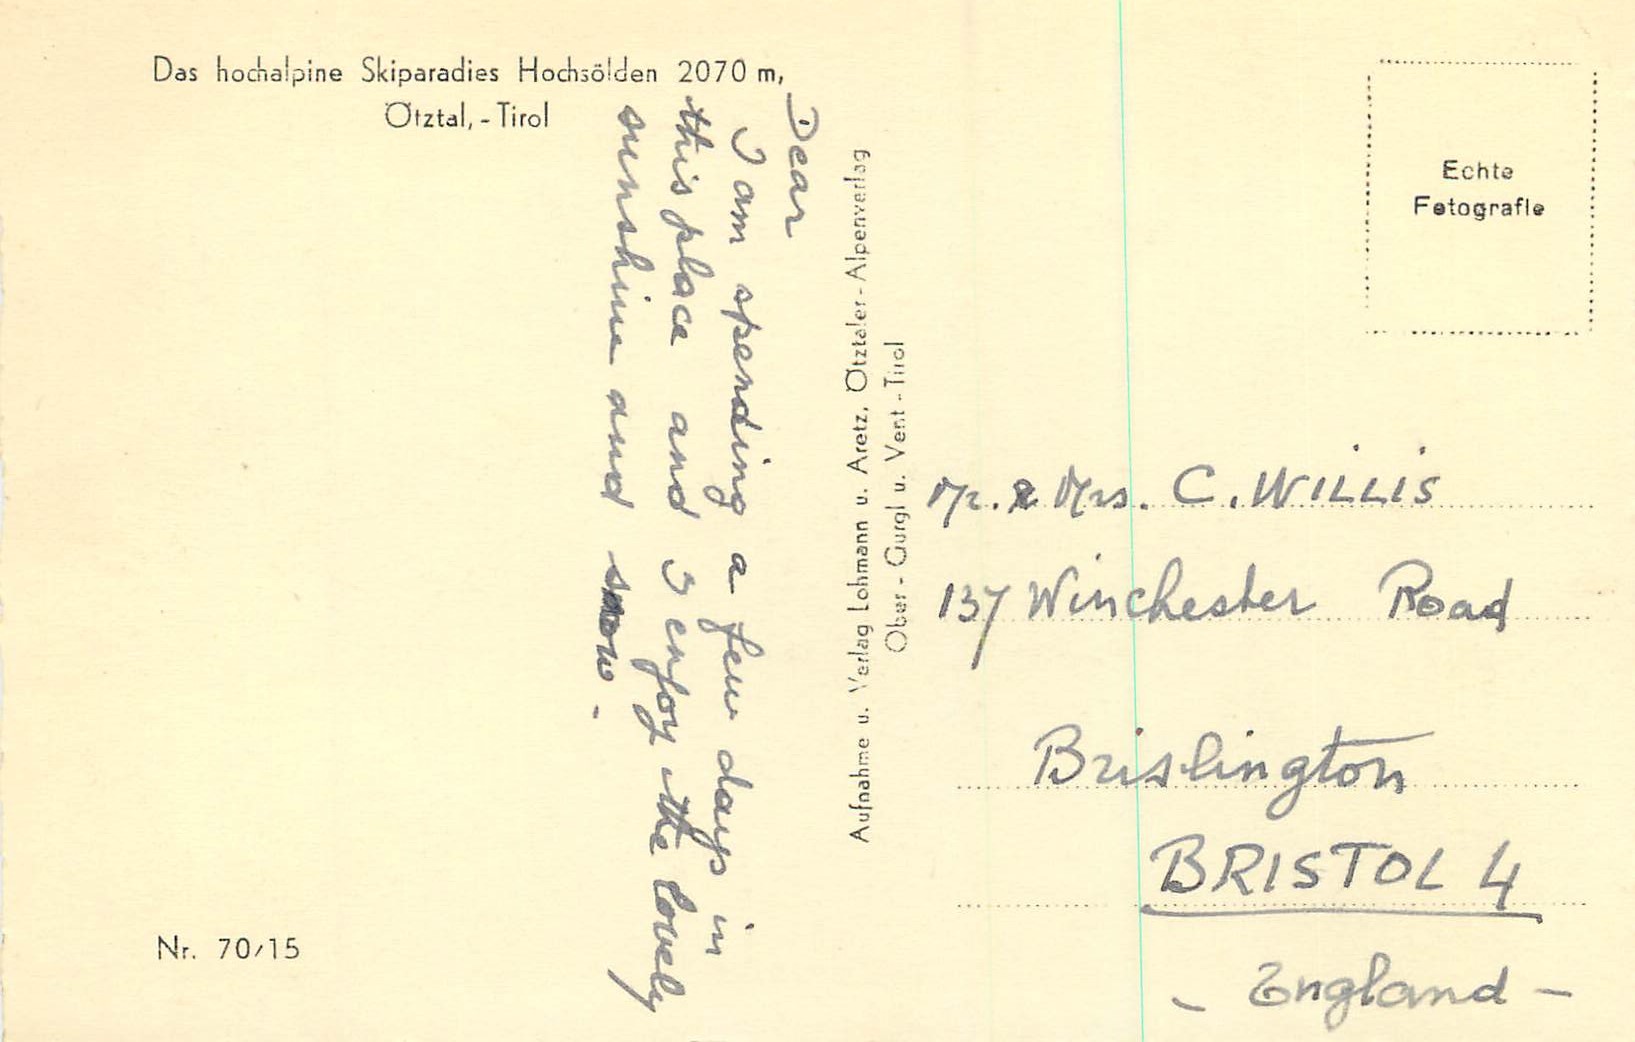 Das hochalpine Skiparadies Hochsölden 2070 m,
Ötztal, - Tirol
Dear
I am spending a few days in
this place and I enjoy the lovely
sunshine and snow.
Nr. 70/15
Aufnahme u. Verlag Lohmann u. Aretz, Ötztaler - Alpenverlag
Ober - Gurgl u. Vent - Tirol
Echte
Fotografie
Mr. & Mrs. C. WILLIS
137 Winchester Road
Brislington
BRISTOL 4
- England -